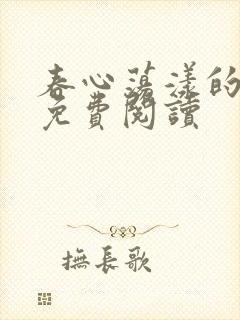 春心蕩漾的
免費閱讀
撫長歌